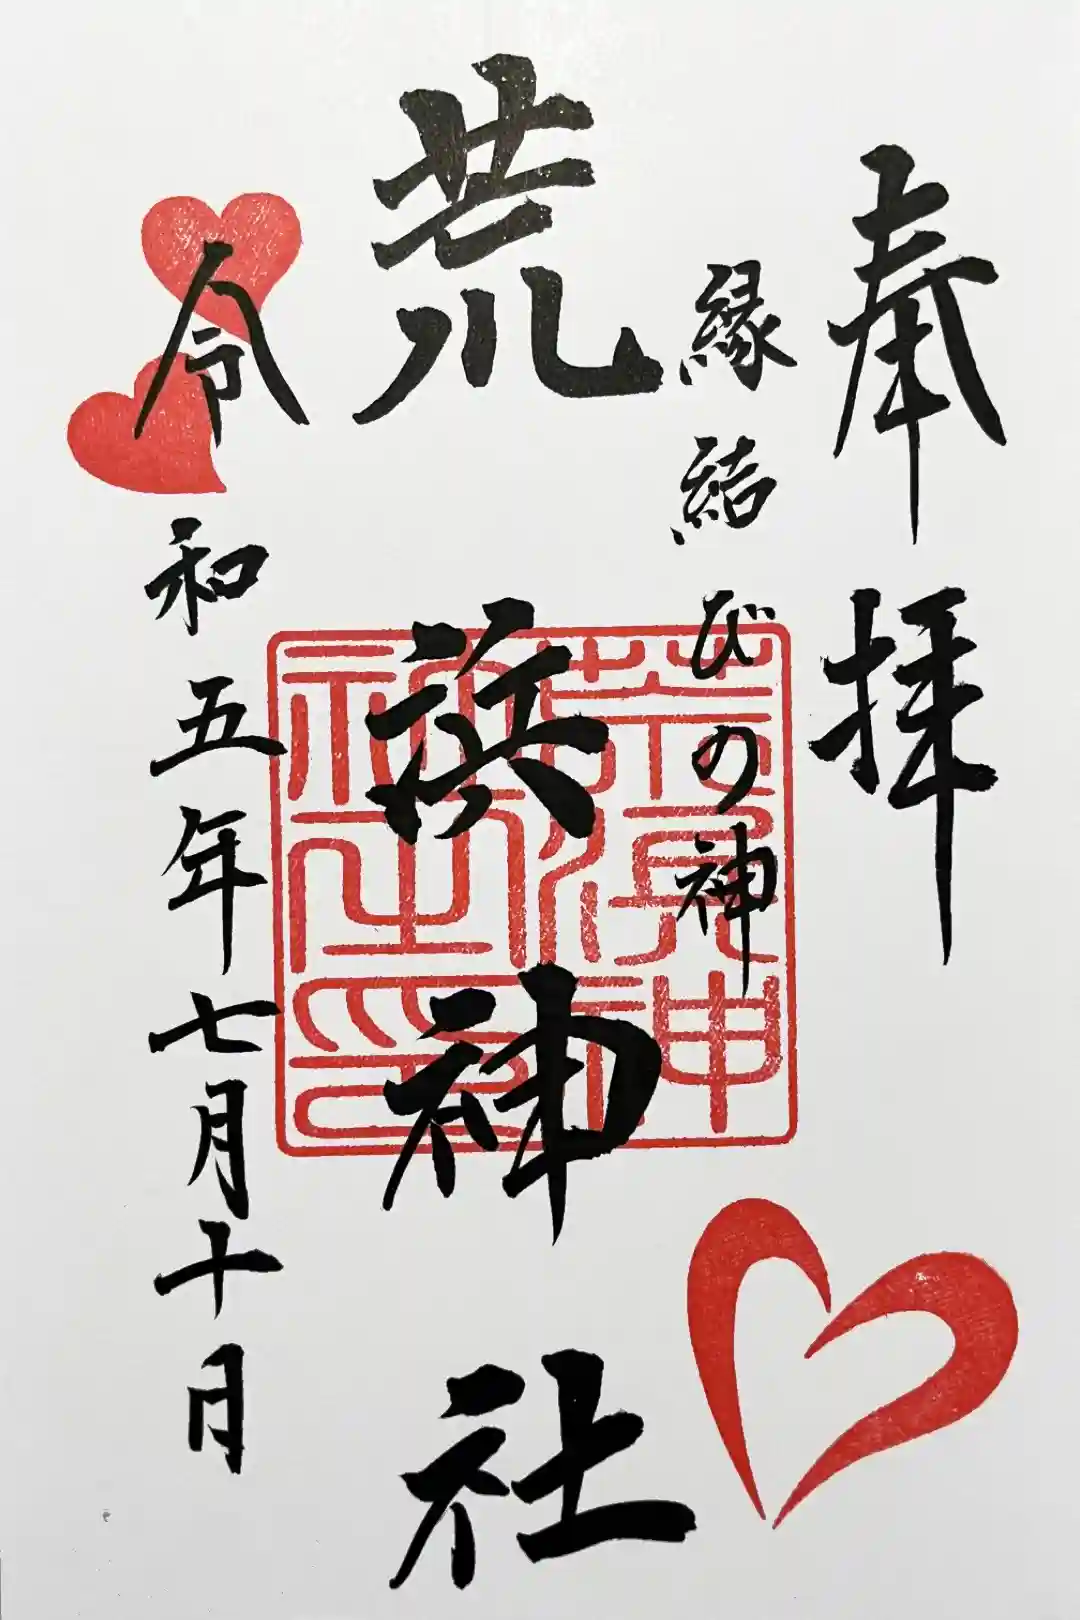 奉拝
縁結びの神
荒浜神社
荒浜神
社之印
令和五年七月十日